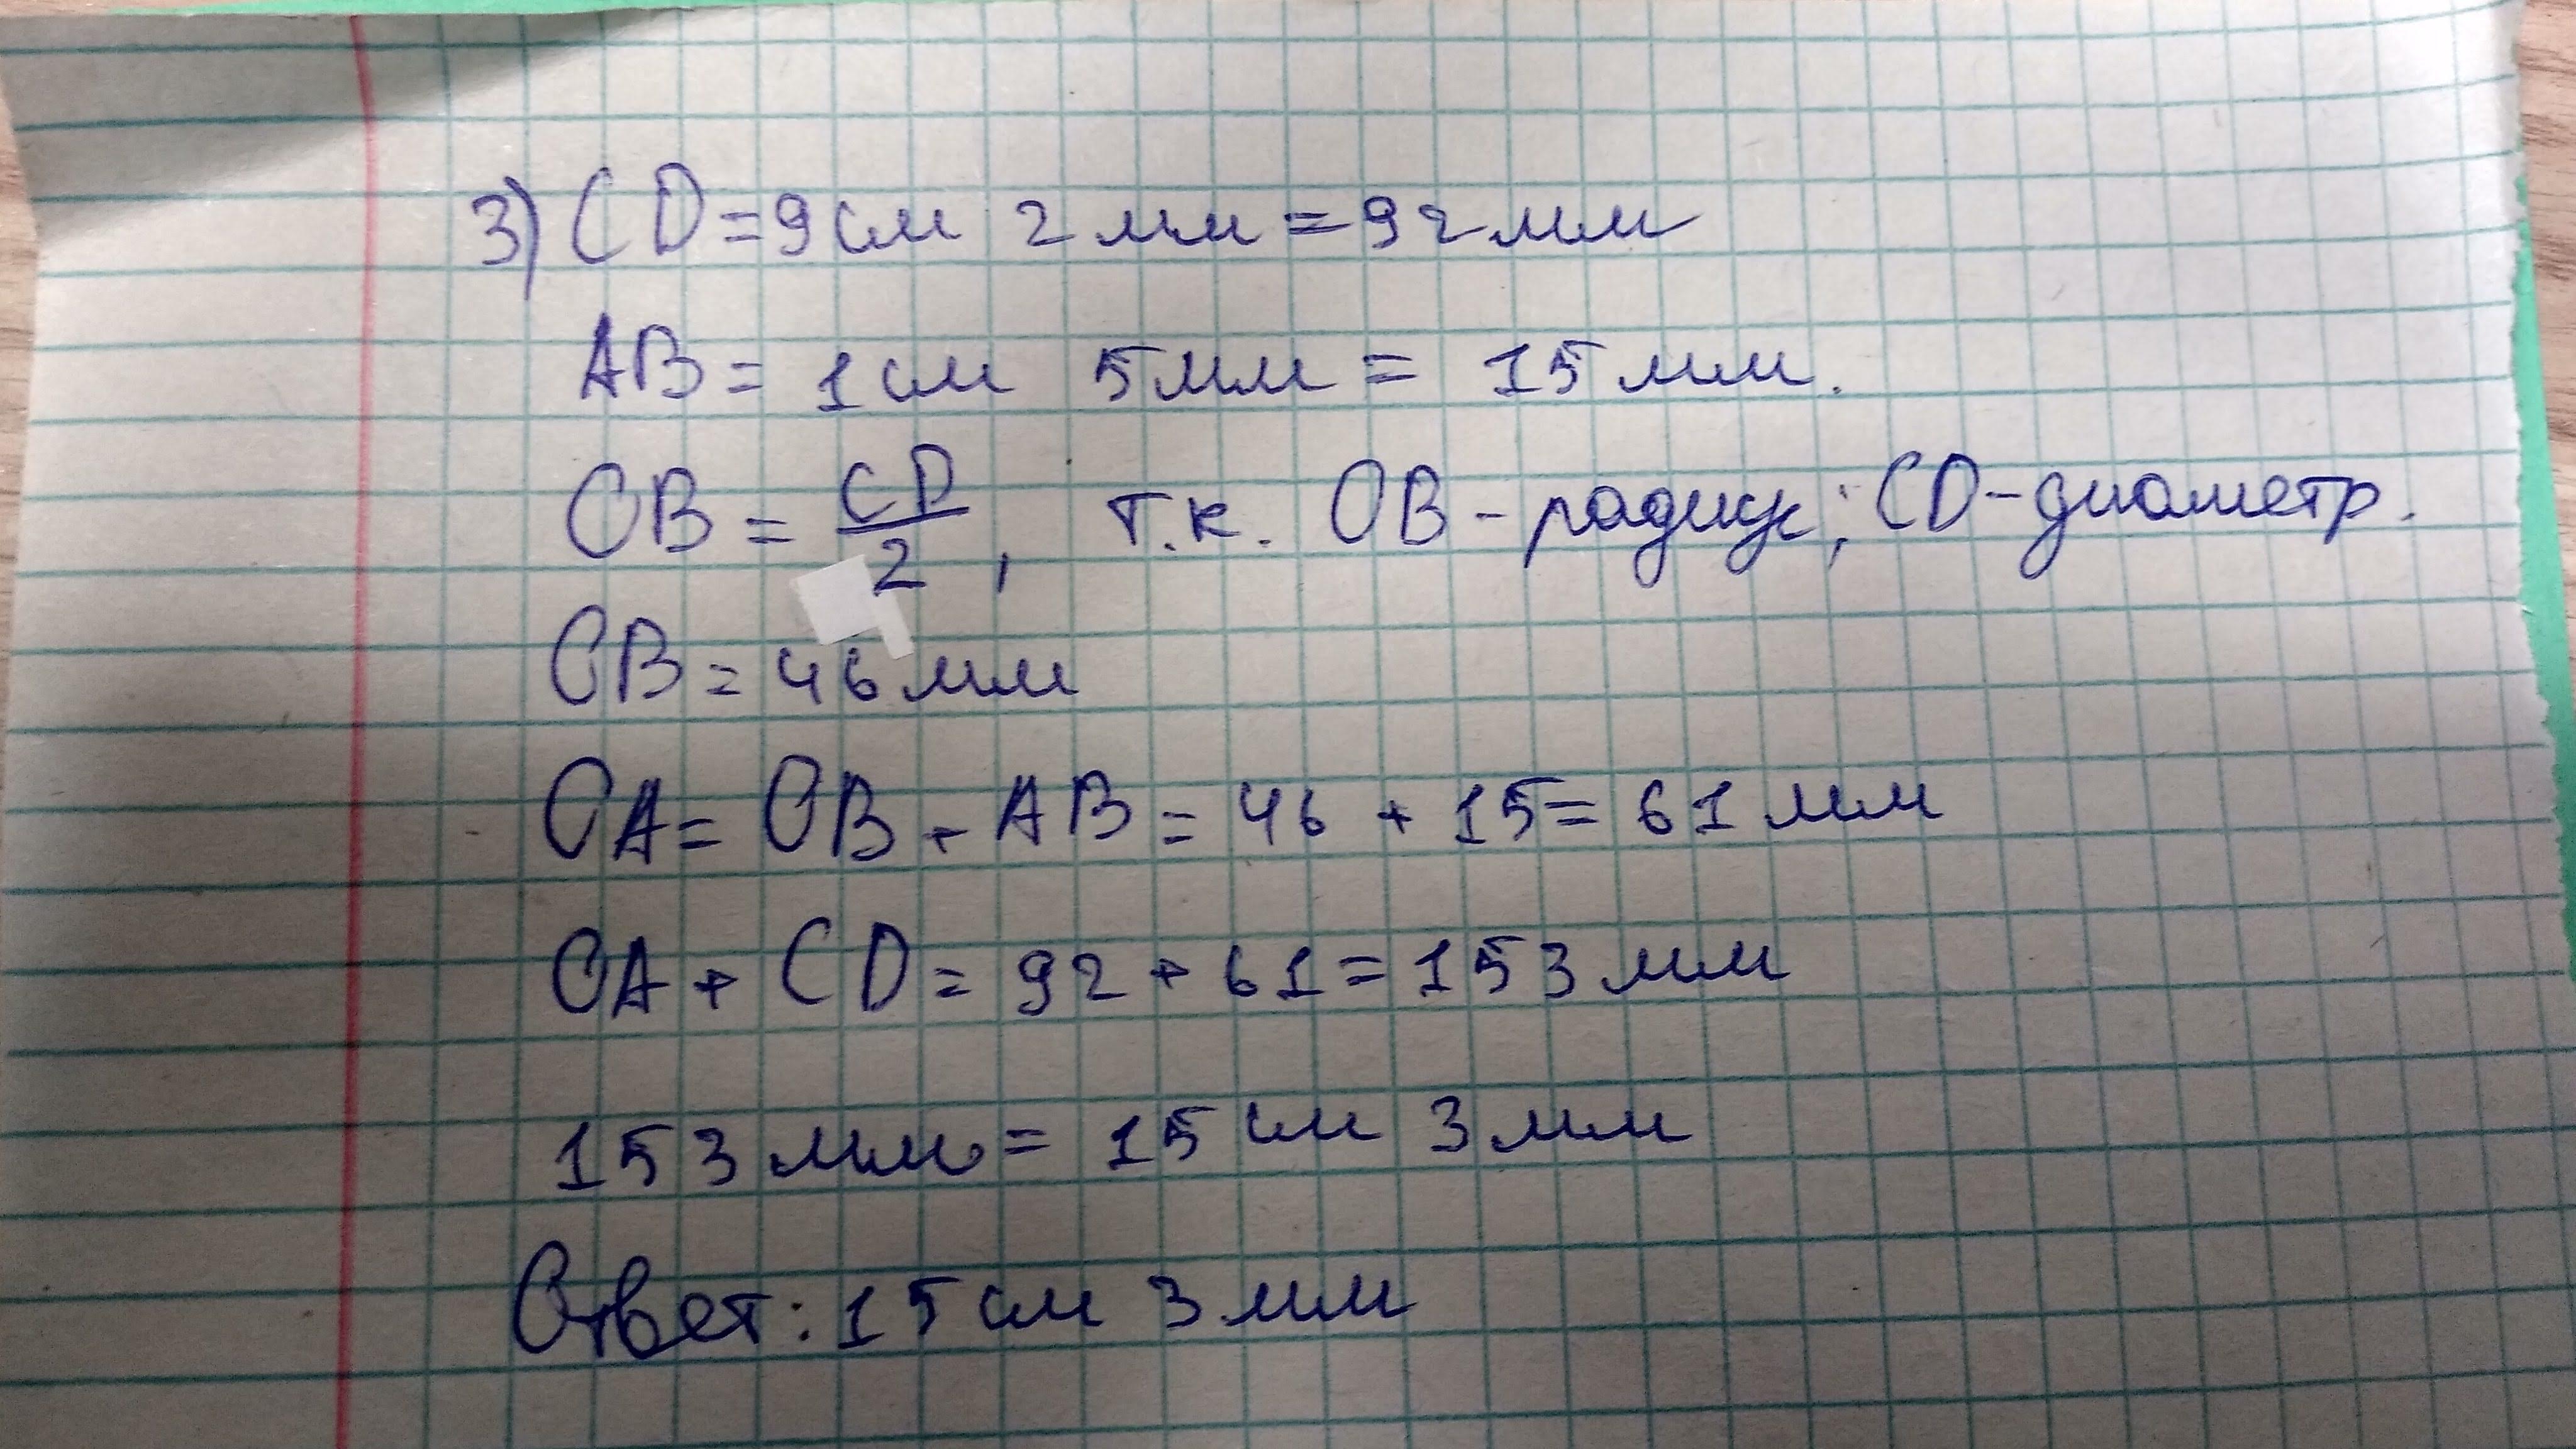 3) CD = 9 см 2 мм = 92 мм
AB = 1 см 5 мм = 15 мм.
OB = CD/2, т.к. OB - радиус; CD - диаметр.
OB = 46 мм
OA = OB + AB = 46 + 15 = 61 мм
OA + CD = 92 + 61 = 153 мм
153 мм = 15 см 3 мм
Ответ: 15 см 3 мм